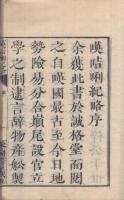 暎咭唎紀略序
余獲此書於誠格堂而閱
之自暎國最古至今日地
勢險易分合顛尾設官立
學之制逮言辭物產舩製